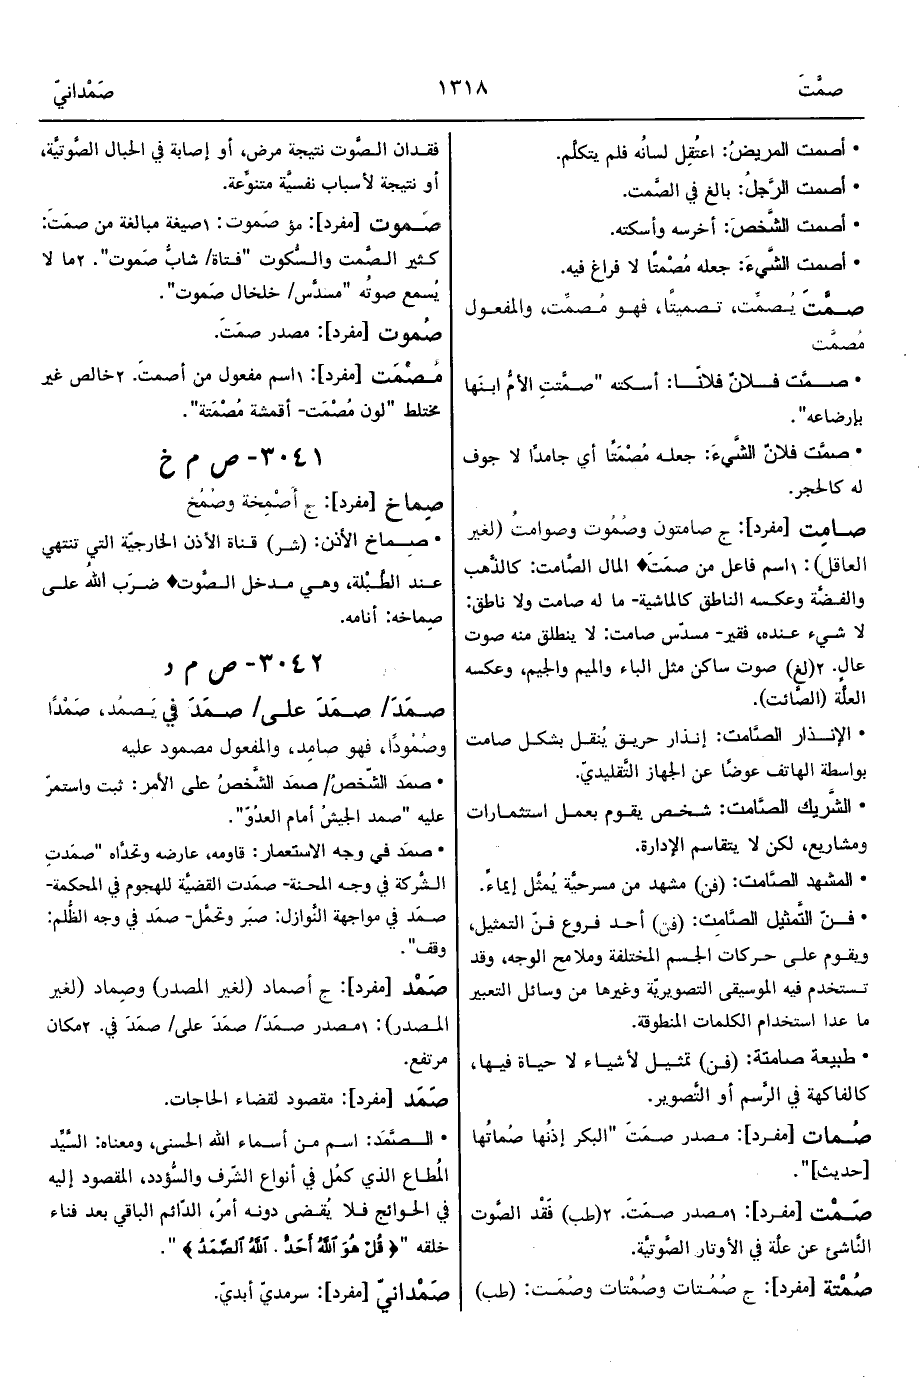 صمَّتَ
١٣١٨
صَمْدانيّ
• أصمت المريضُ: اعتُقِل لسانُه فلم يتكلّم.
• أصمت الرَّجلُ: بالغ في الصَّمت.
• أصمت الشَّخصَ: أخرسه وأسكته.
• أصمت الشَّيءَ: جعله مُصْمتًا لا فراغ فيه.
صـمَّتَ يُصمِّت، تـصميتًا، فهـو مُـصمِّت، والمفعـول
مُصمَّت
• صـمَّت فـلانٌ فلانًـا: أسـكته "صـمَّتتِ الأمُّ ابنَها
بإرضاعه".
• صمَّت فلانٌ الشَّيءَ: جعلـه مُصْمَتًا أي جامدًا لا جوف
له كالحجر.
صامِت [مفرد]: ج صامتون وصُمُوت وصوامتُ (لغير
العاقل): ١اسم فاعل من صمَتَ♦ المال الصَّامت: كالذَّهب
والفـضَّة وعكـسه الناطق كالماشية- ما له صامت ولا ناطق:
لا شيء عنده، فقير- مسدّس صامت: لا ينطلق منه صوت
عالٍ. ٢(لغ) صوت ساكن مثل الباء والميم والجيم، وعكسه
العلَّة (الصَّائت).
• الإنـذار الصَّامت: إنـذار حريـق يُنقـل بشكـل صامت
بواسطة الهاتف عوضًا عن الجهاز التَّقليديّ.
• الشَّريك الصَّامت: شـخـص يقـوم بعمـل استثمـارات
ومشاريع، لكن لا يتقاسم الإدارة.
• المشهد الصَّامت: (فن) مشهد من مسرحيَّة يُمثَّل إيماءً.
• فـنّ التَّمثيل الصَّامت: (فن) أحد فـروع فـنّ التمثيل،
ويقـوم علـى حـركات الجـسم المختلفة وملامح الوجه، وقد
تـستخدم فيه الموسيقى التصويريّة وغيرها من وسائل التعبير
ما عدا استخدام الكلمات المنطوقة.
• طبيعة صامتة: (فـن) تمثيـل لأشياء لا حيـاة فيهـا،
كالفاكهة في الرَّسم أو التَّصوير.
صُمات [مفـرد]: مـصدر صمَتَ "البكر إذنُها صُماتُها
[حديث]".
صَـمْت [مفرد]: ١مـصدر صمَتَ. ٢(طب) فَقْد الصَّوت
النَّاشئ عن علّة في الأوتار الصَّوتيَّة.
صُمْتة [مفرد]: ج صُمُتات وصُمْتات وصُمَت: (طب)
فقـدان الـصَّوت نتيجة مرض، أو إصابة في الحبال الصَّوتيَّة،
أو نتيجة لأسباب نفسيَّة متنوِّعة.
صَـموت [مفرد]: مؤ صَموت: ١صيغة مبالغة من صمَتَ:
كـثير الـصَّمت والـسُّكوت "فـتاة/ شابٌّ صَموت". ٢ما لا
يُسمع صوتُه "مسدَّس/ خلخال صَموت".
صُموت [مفرد]: مصدر صمَتَ.
مُـصْمَت [مفرد]: ١اسم مفعول من أصمتَ. ٢خالص غير
مختلط "لون مُصْمَت- أقمشة مُصْمَتة".
٣٠٤١- ص م خ
صِماخ [مفرد]: ج أَصْمِخة وصُمُخ
• صِـماخ الأذن: (شر) قـناة الأذن الخارجيّة التي تنتهي
عـند الطَّبْلة، وهـي مـدخل الـصَّوت♦ ضرَب اللهُ علـى
صِماخه: أنامه.
٣٠٤٢- ص م د
صـمَدَ/ صـمَدَ علـى/ صـمَدَ في يَـصمُد، صَمْدًا
وصُمُودًا، فهو صامِد، والمفعول مصمود عليه
• صمَد الشَّخصُ/ صمَد الشَّخصُ على الأمر: ثبت واستمرّ
عليه "صمد الجيشُ أمام العدُوّ".
• صمَد في وجه الاستعمار: قاومه، عارضه وتحدَّاه "صمَدتِ
الشَّركة في وجـه المحنـة- صمَدت القضيَّة للهجوم في المحكمة-
صمَـد في مواجهة النَّوازل: صبَر وتحمَّل- صمَد في وجه الظُّلم:
وقف".
صَمْد [مفرد]: ج أصماد (لغير المصدر) وصِماد (لغير
المـصدر): ١مـصدر صمَدَ/ صمَدَ على/ صمَدَ في. ٢مكان
مرتفع.
صَمَد [مفرد]: مقصود لقضاء الحاجات.
• الـصَّمَد: اسـم مـن أسمـاء الله الحسنى، ومعناه: السَّيِّد
المُطاع الذي كمُل في أنواع الشّرف والسُّؤدد، المقصود إليه
في الحـوائج فـلا يُقـضى دونـه أمرٌ، الدَّائم الباقي بعد فناء
خلقه "﴿ قُلْ هُوَ ٱللَّهُ أَحَدٌ . ٱللَّهُ ٱلصَّمَدُ ﴾ ".
صَـمْدانيّ [مفرد]: سرمديّ أبديّ.